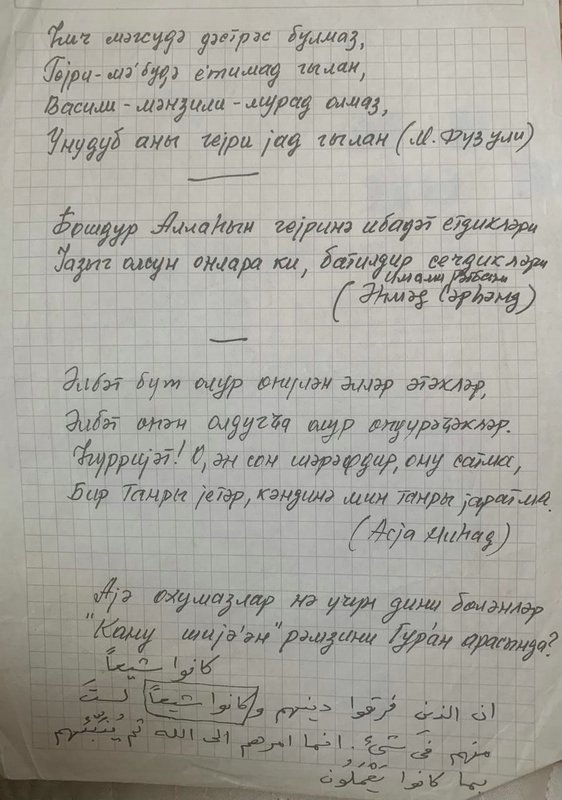 Һич мәгсудә дәстрәс булмаз,
Гејри-мә'будә е'тимад гылан,
Васили-мәнзили-мурад олмаз,
Унудуб аны гејри јад гылан (М. Фүзули)
Бошдур Аллаһын гејринә ибадәт етдикләри
Јазыг олсун онлара ки, батилдир сечдикләри
Имами Рәббани
(Әһмәд Сәрһәнд)
Әлбәт бүт олур өпүлән әлләр әтәкләр,
Әлбәт өпән олдугча олур өпдүрәҹәкләр.
Һүрријәт! О, ән сон шәрәфдир, ону сатма,
Бир Танры јетәр, кәндинә мин танры јаратма.
(Асја Ниһад)
Ајә охумазлар нә үчүн дини бөләнләр
"Кану шијә'ән" рәмзини Гур'ан арасында?
كانوا شيعاً
ان الذين فرقوا دينهم و كانوا شيعاً لستَ
منهم في شيءٍ. انما امرهم الى الله ثم يُنَبِّئُهم
بما كانوا يَفْعَلُون